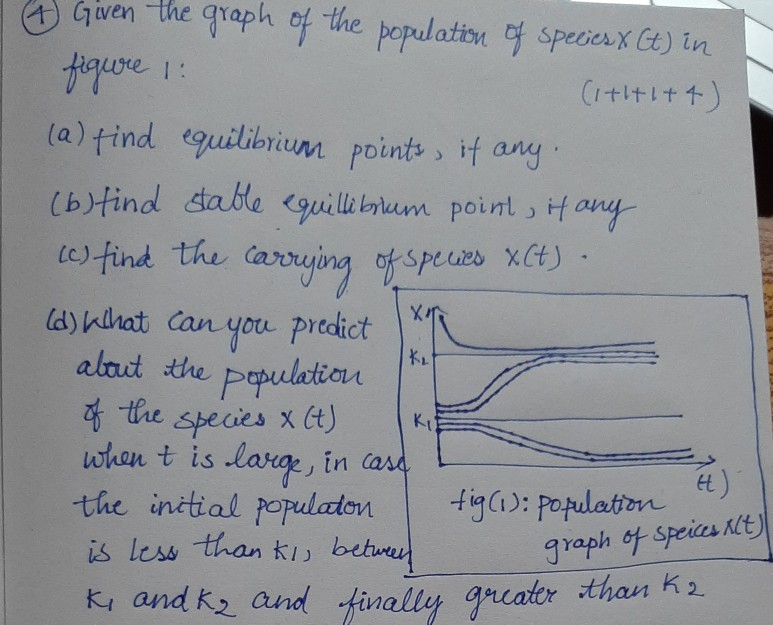 ④ Given the graph of the population of species X(t) in
figure 1:
(1+1+1+4)
(a) find equilibrium points, if any.
(b) find stable equillibrium point, if any
(c) find the carrying of species X(t).
(d) What can you predict
about the population
of the species X(t)
when t is large, in case
the initial populaton
is less than K1, between
K1 and K2 and finally greater than K2
X
K2
K1
(t)
fig(1): population
graph of speices X(t)